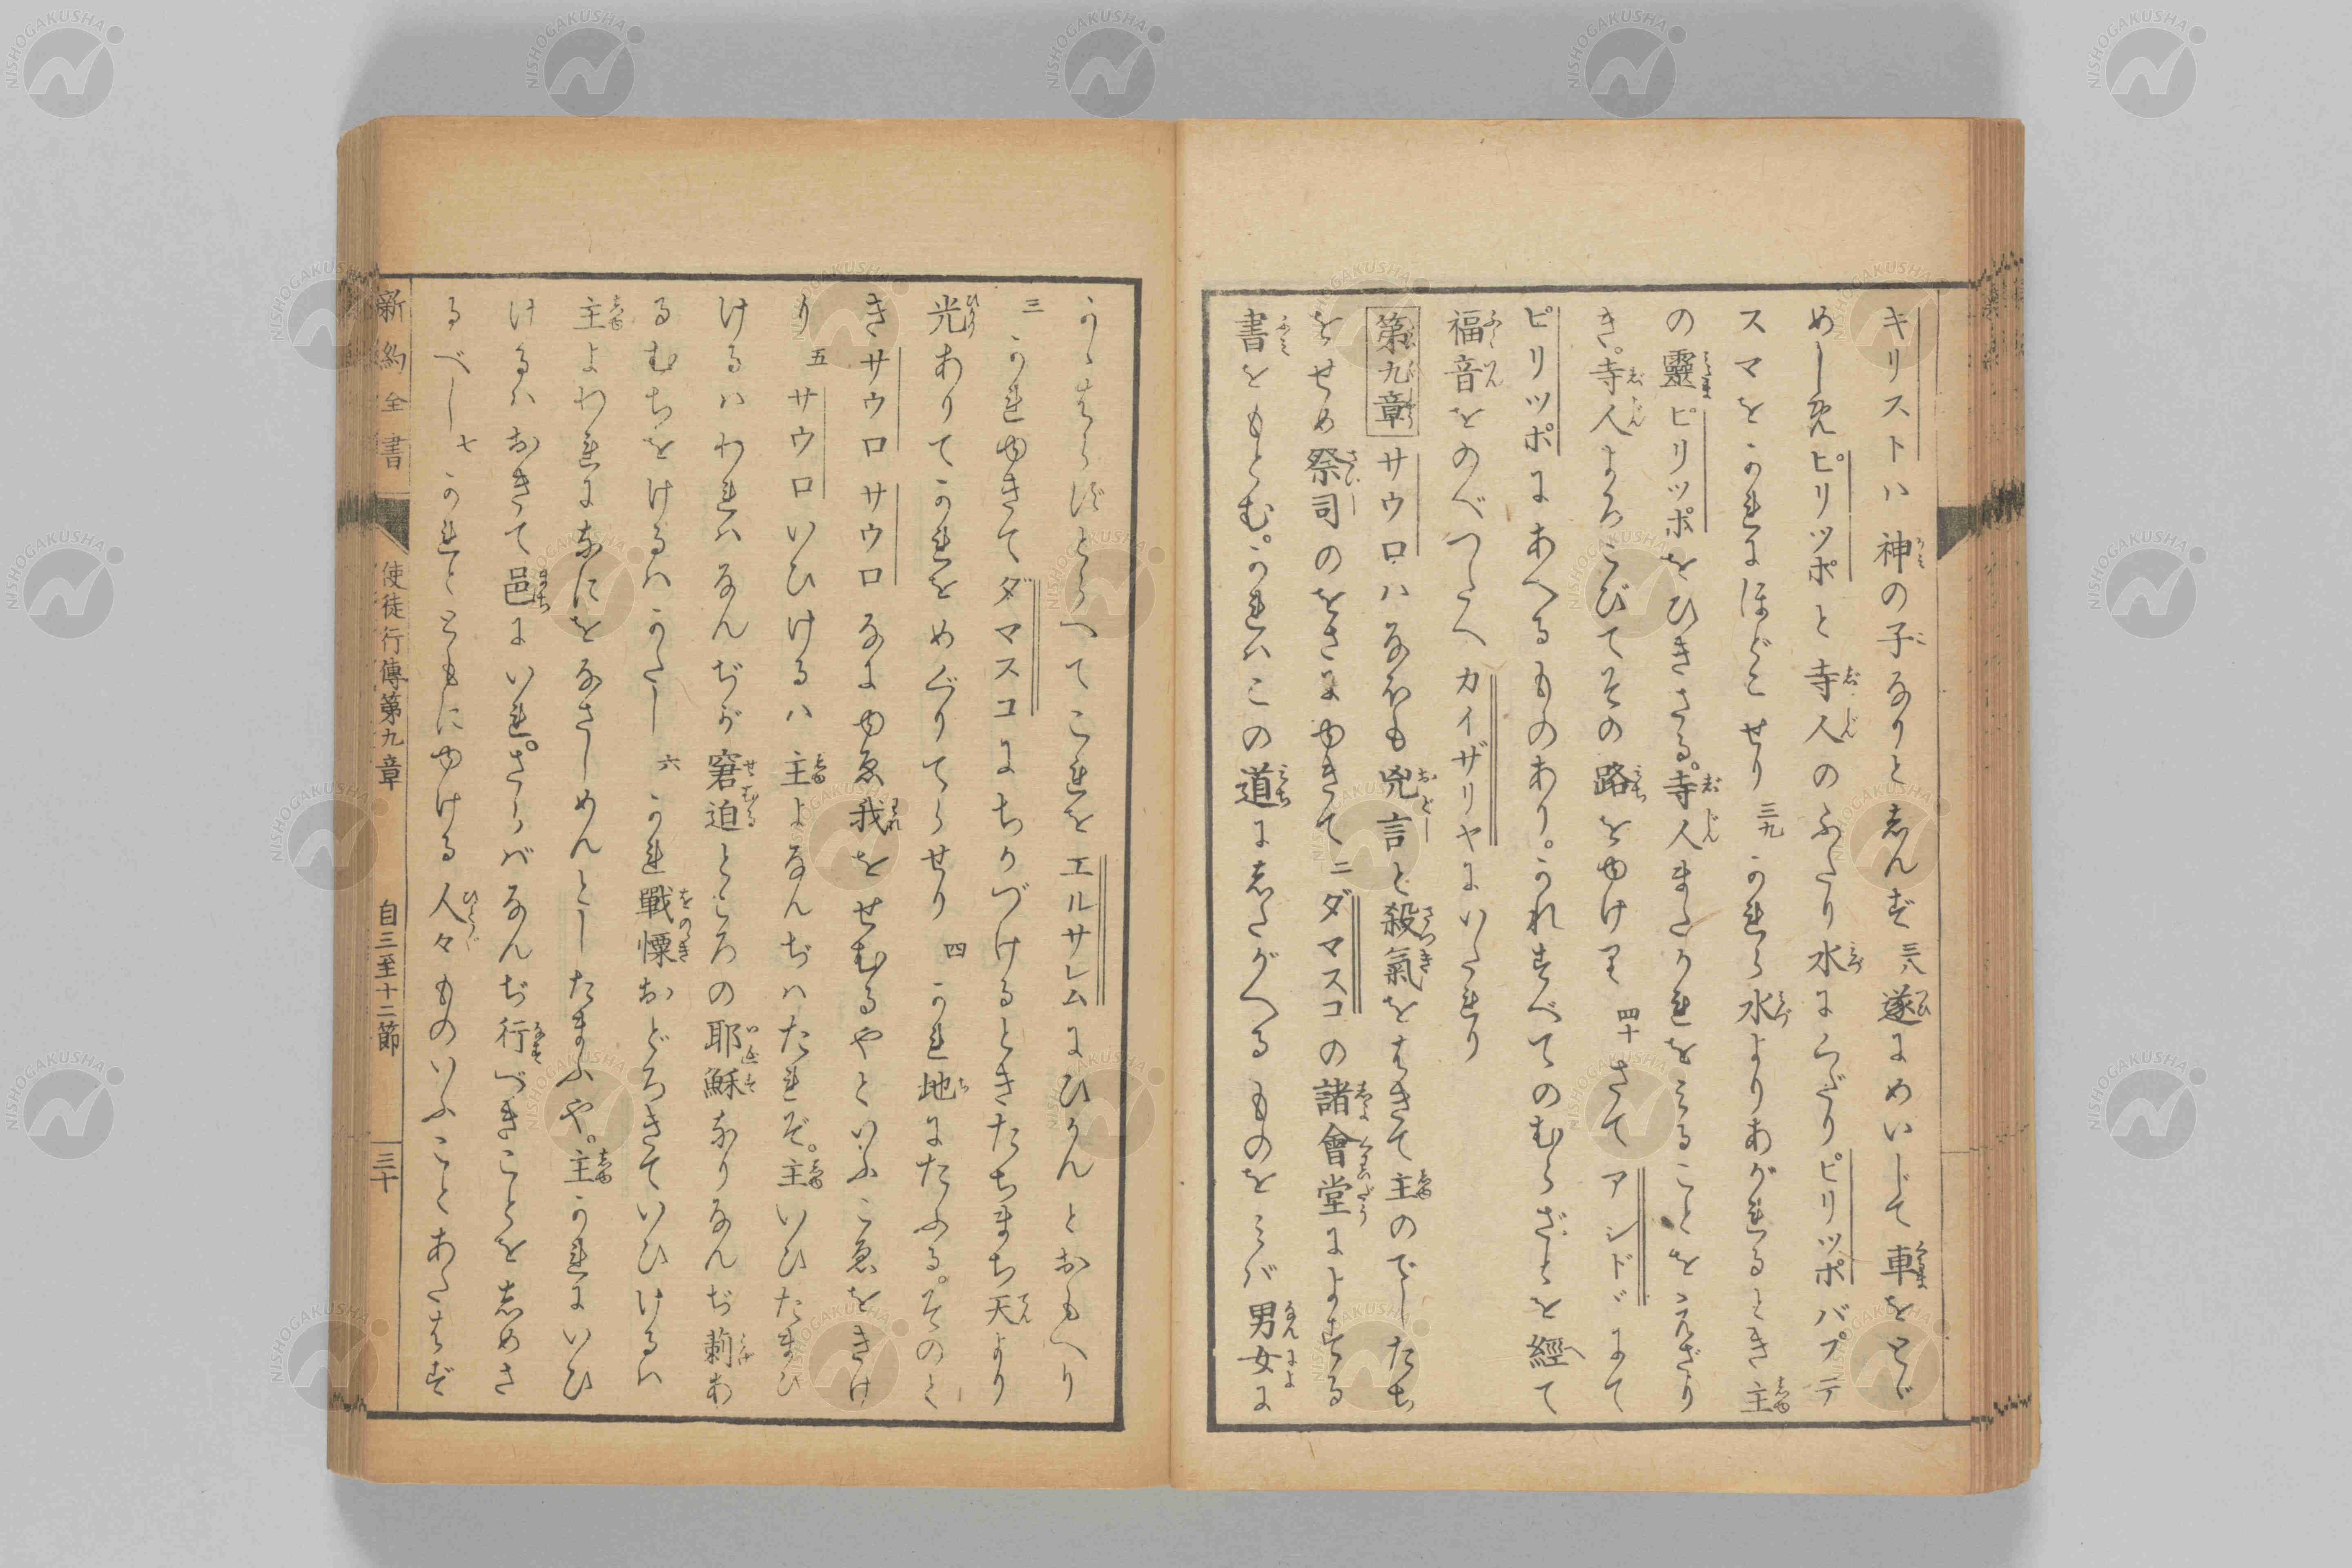 キリストハ神の子なりと志んず 三八 遂にめいじて車をとゞ
めしめピリツポと寺人のふたり水にくだりピリツポバプテ
スマをかれにほどこせり 三九 かれら水よりあがれるとき主
の靈ピリツポをひきさる。寺人またかれをみることをえざり
き。寺人よろこびてその路をゆけり 四十 さてアシドドにて
ピリツポにあへるものあり。かれすべてのむらざとを經て
福音をのべつたへカイザリヤにいたれり
第九章 サウロハなほも兇言と殺氣をはきて主のでしたち
をせめ祭司のをさにゆきて 二 ダマスコの諸會堂によする
書をもとむ。かれハこの道に志たがへるものをみバ男女に
かゝはらずとらへてこれをエルサレムにひかんとおもへり
三 かれゆきてダマスコにちかづけるときたちまち天より
光ありてかれをめぐりてらせり 四 かれ地にたふる。そのと
きサウロサウロなにゆゑ我をせむるやといふこゑをきけ
り 五 サウロいひけるハ主よなんぢハたれぞ。主いひたまひ
けるハわれハなんぢが窘迫ところの耶穌なりなんぢ莿あ
るむちをけるハかたし 六 かれ戰慄おどろきていひけるハ
主よわれになにをなさしめんとしたまふや。主かれにいひ
けるハおきて邑にいれ。さらバなんぢ行べきことを志めさ
るべし 七 かれとともにゆける人々ものいふことあたはず
新約全書 使徒行傳第九章 自三至十二節 三十
NISHOGAKUSHA